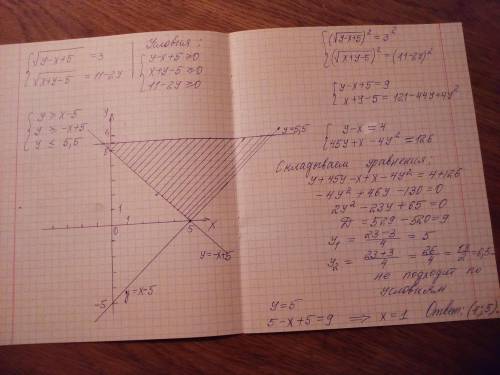 { √(y-x+5) = 3
{ √(x+y-5) = 11-2y
Условия:
{ y-x+5 ≥ 0
{ x+y-5 ≥ 0
{ 11-2y ≥ 0
{ y ≥ x-5
{ y ≥ -x+5
{ y ≤ 5,5
y
y=5,5
5
1
0
1
5
x
y=-x+5
y=x-5
-5
{ (√(y-x+5))² = 3²
{ (√(x+y-5))² = (11-2y)²
{ y-x+5 = 9
{ x+y-5 = 121-44y+4y²
{ y-x = 4
{ 45y+x-4y² = 126
Складываем уравнения:
y+45y-x+x-4y² = 4+126
-4y²+46y-130=0
2y²-23y+65=0
D = 529-520=9
y₁ = (23-3)/4 = 5
y₂ = (23+3)/4 = 26/4 = 13/2 = 6,5-
не подходит по
условиям
y=5
5-x+5=9 ⟹ x=1
Ответ: (1;5).